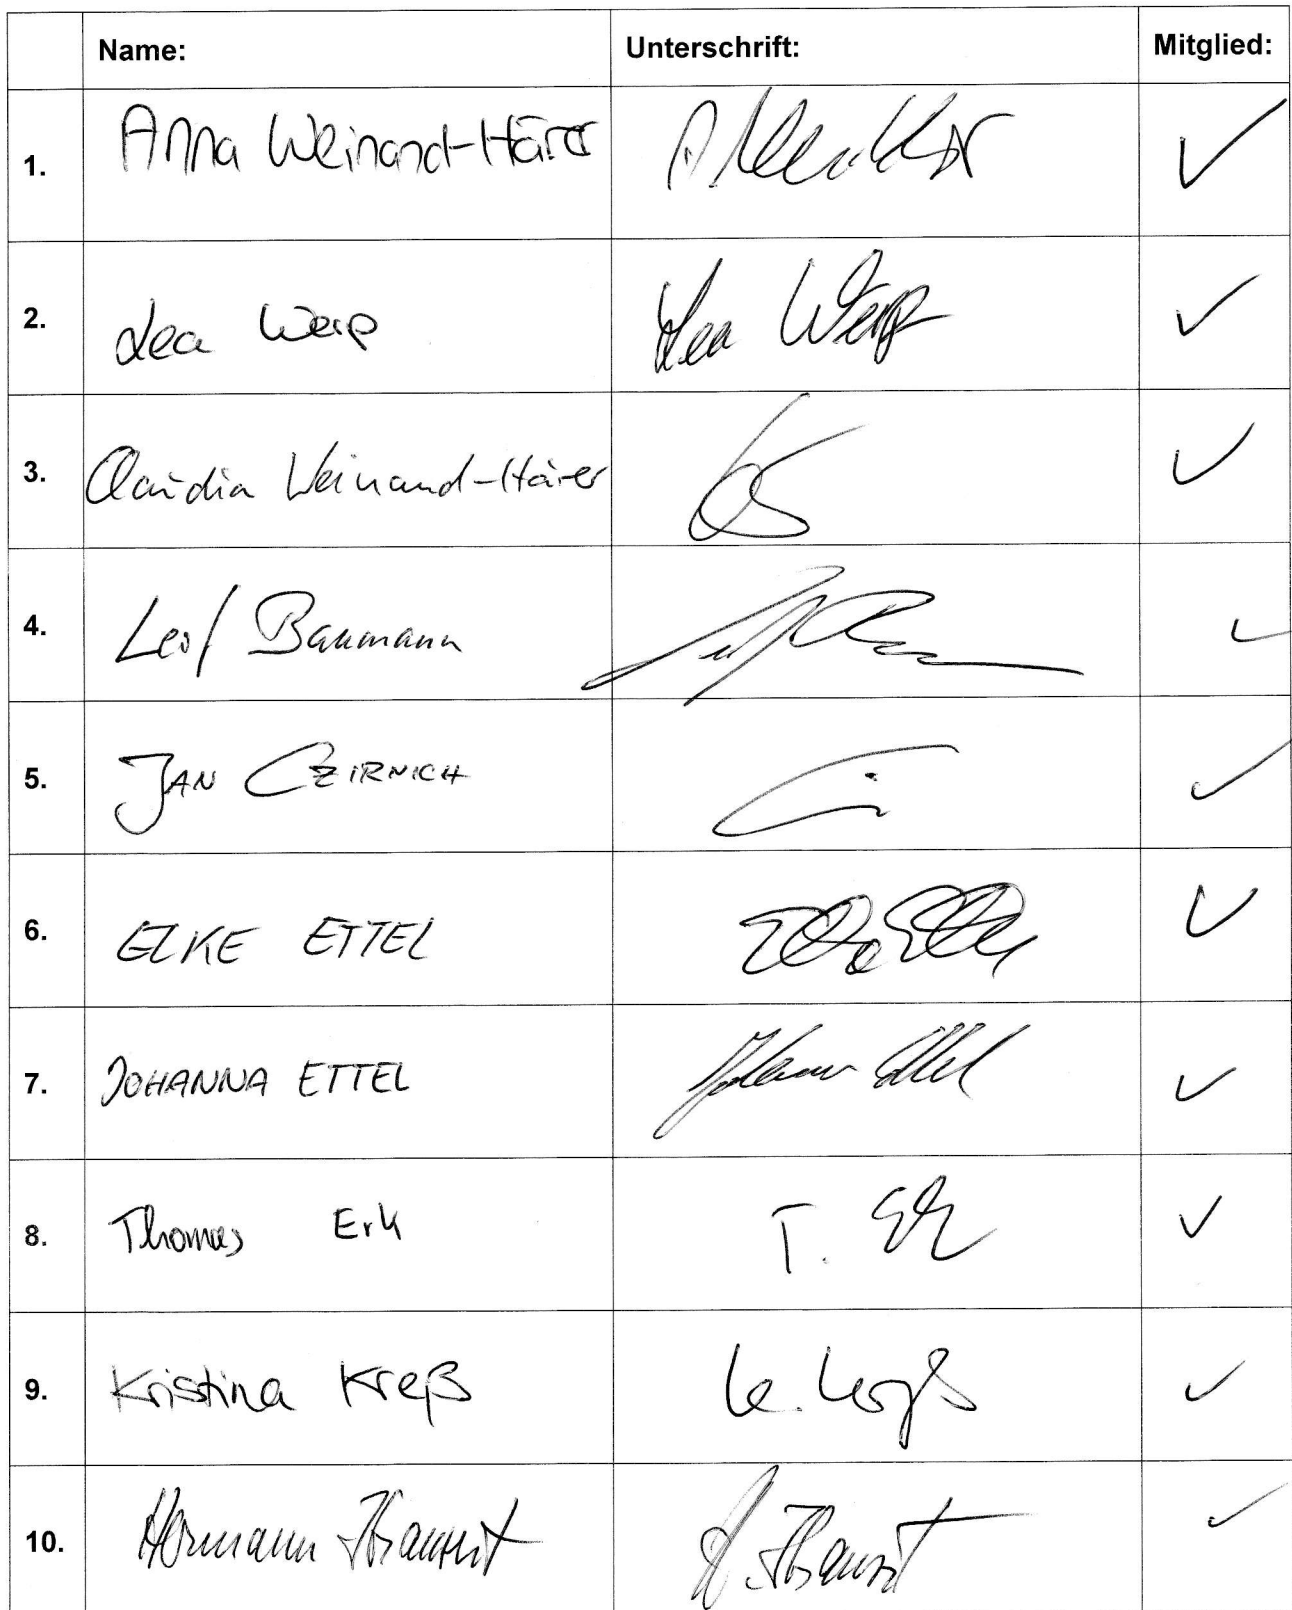 Name: Unterschrift: Mitglied:
1. Anna Weinand-Härer ✓
2. Lea Werp Lea Werp ✓
3. Claudia Weinand-Härer ✓
4. Leif Baumann ✓
5. JAN CZIRNICH ✓
6. ELKE ETTEL ✓
7. JOHANNA ETTEL Johanna Ettel ✓
8. Thomas Erk T. Erk ✓
9. Kristina Kreß K. Kreß ✓
10. Hermann ✓